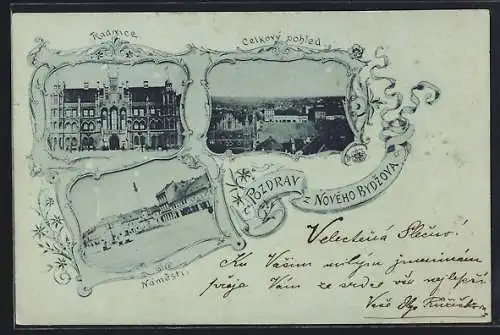 Radnice.
Celkový pohled
POZDRAV
z NOVÉHO BYDŽOVA.
Náměstí.
Velectěná Slečno!
Ku Vašim milým jmeninám
přeje Vám ze srdce vše nejlepší
Vaše Olga